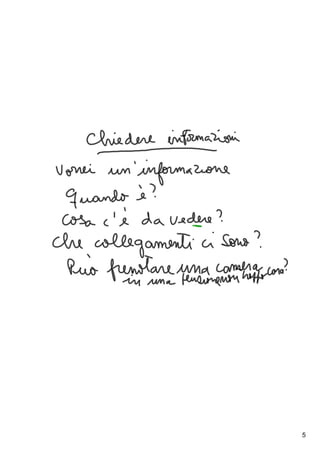 Chiedere informazioni
Vorrei un'informazione
Quando è?
Cosa c'è da vedere?
Che collegamenti ci sono?
Può prenotare una camera
in una pensione non troppo cara?
5